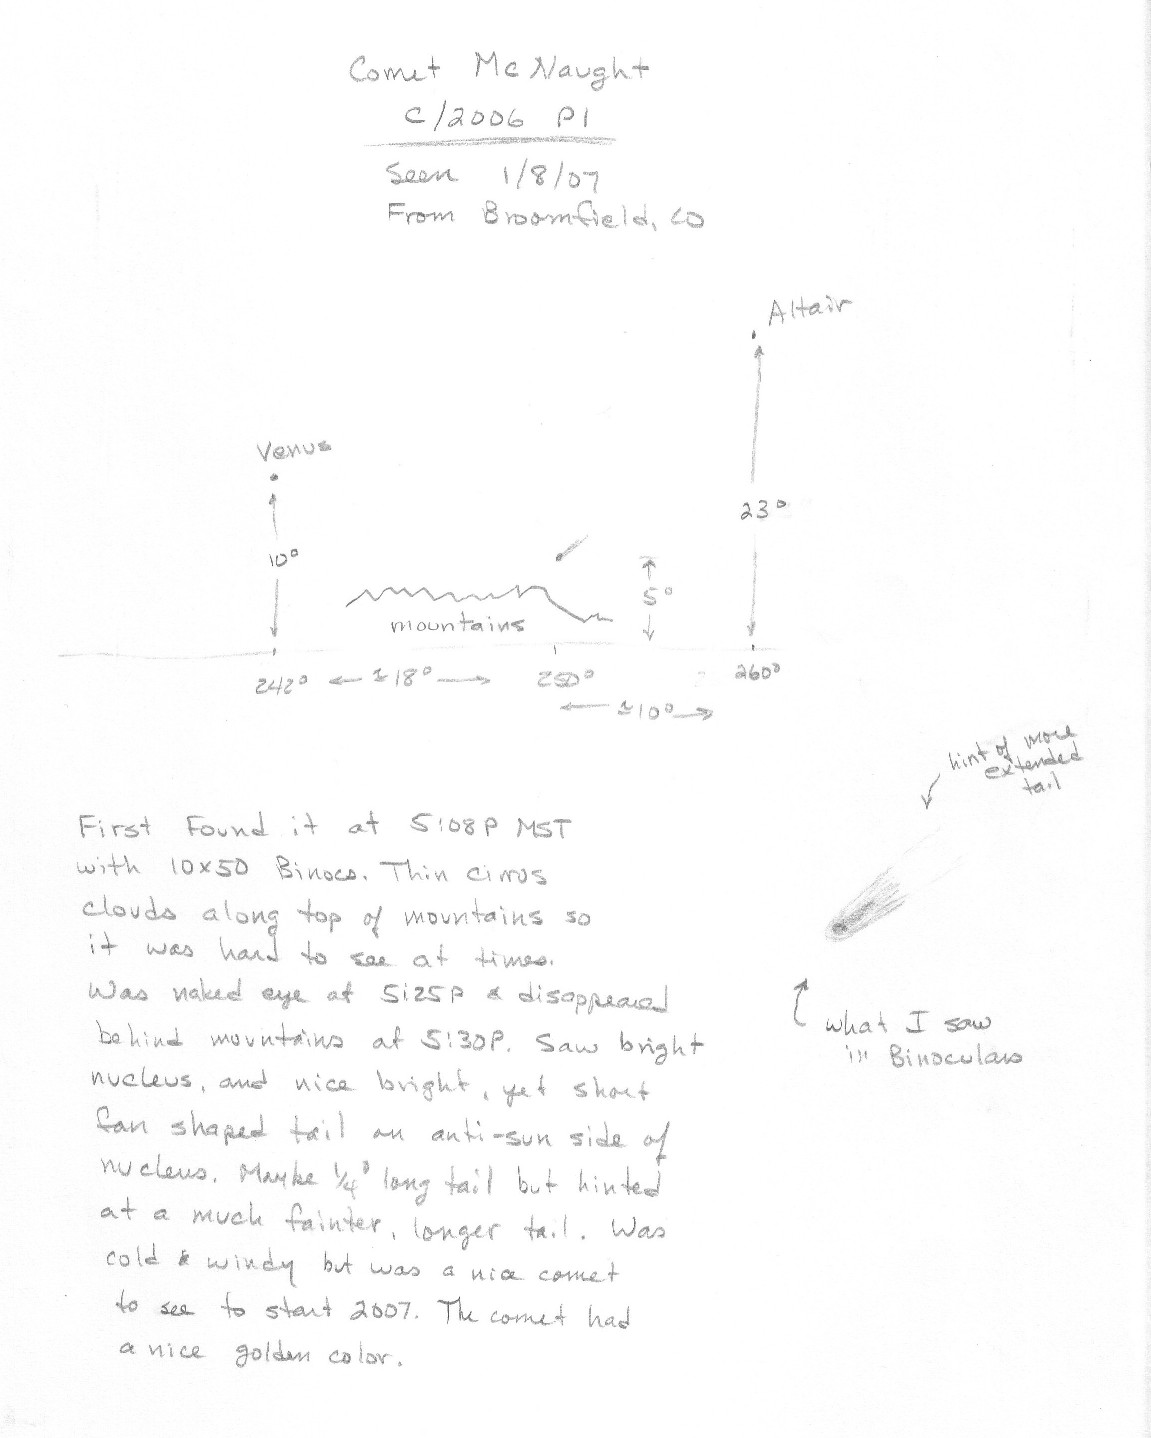 Comet McNaught
C/2006 P1
Seen 1/8/07
From Broomfield, CO
Altair
Venus
23°
10°
5°
mountains
242° ← ≈18° → 250° 260°
← ≈10° →
hint of more
extended
tail
First Found it at 5:08P MST
with 10x50 Binocs. Thin cirrus
clouds along top of mountains so
it was hard to see at times.
Was naked eye at 5:25P & disappeared
behind mountains at 5:30P. Saw bright
nucleus, and nice bright, yet short
fan shaped tail on anti-sun side of
nucleus. Maybe 1/4° long tail but hinted
at a much fainter, longer tail. Was
cold & windy but was a nice comet
to see to start 2007. The comet had
a nice golden color.
what I saw
in Binoculars